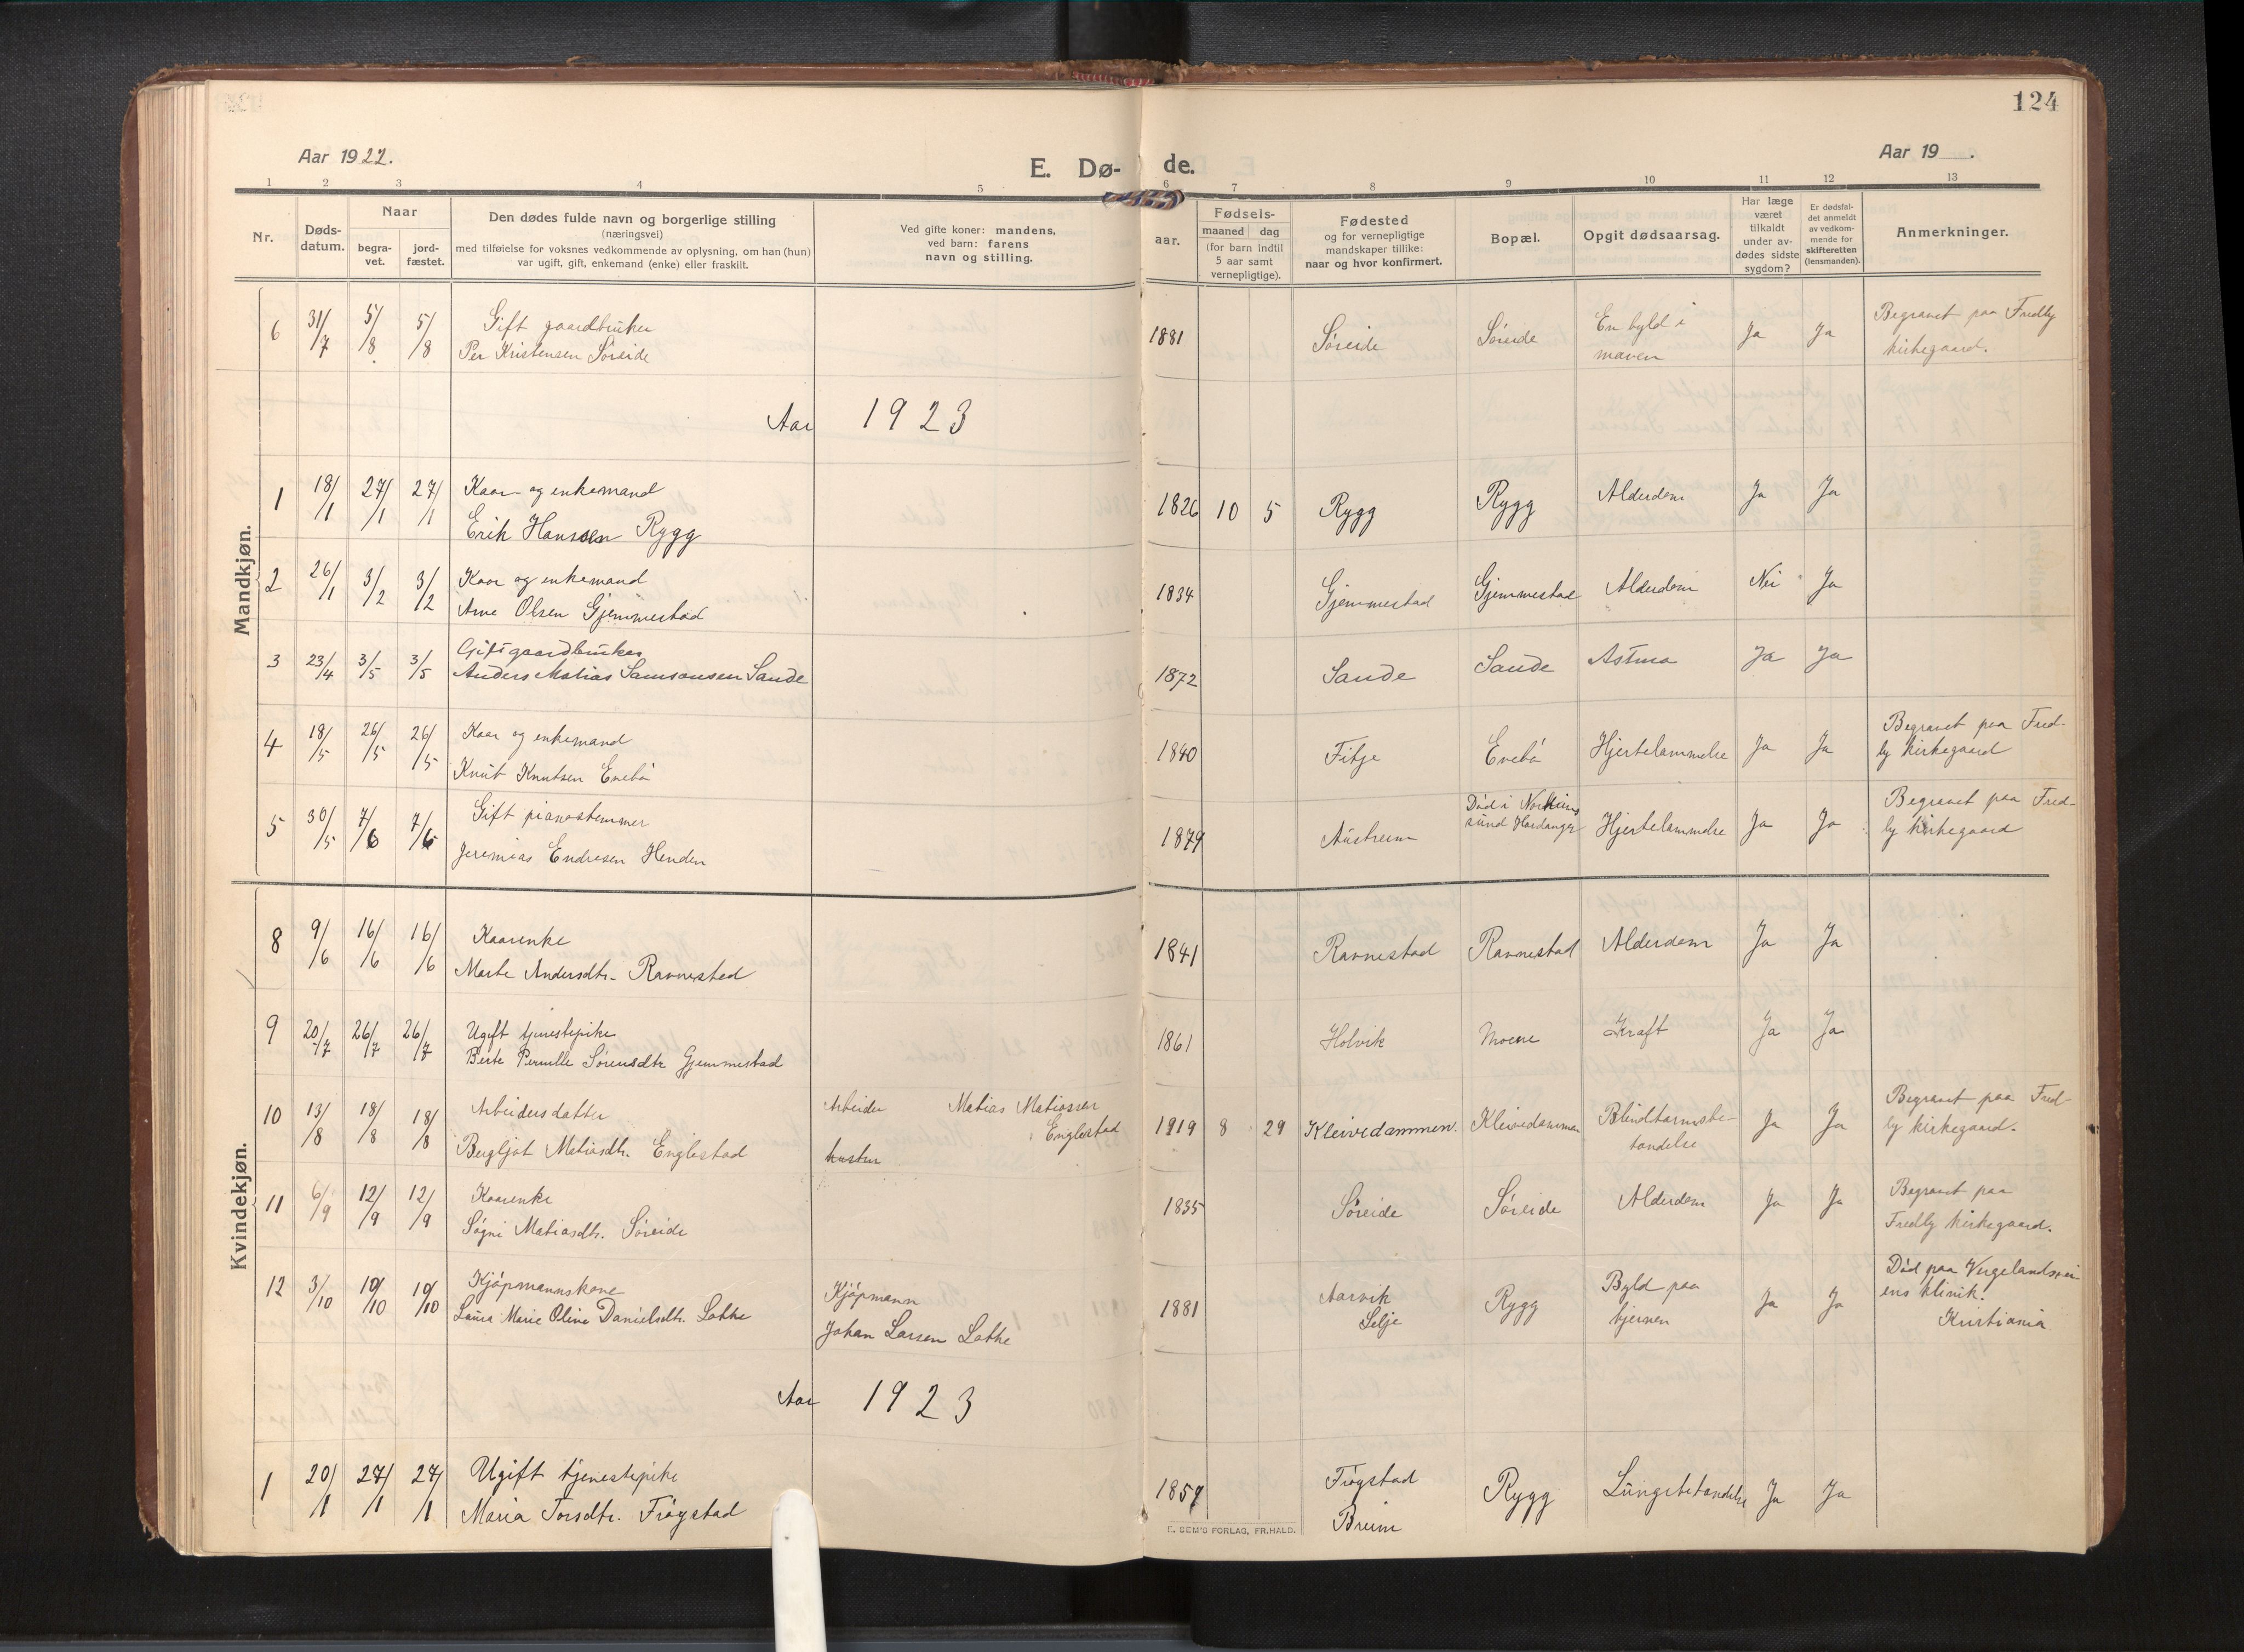 124
Aar 1922.
E. Dø-
de.
Aar 19 .
1 2 3 4 5 6 7 8 9 10 11 12 13
Nr.
Døds-
datum.
Naar
begra-
vet.
jord-
fæstet.
Den dødes fulde navn og borgerlige stilling
(næringsvei)
med tilføielse for voksnes vedkommende av oplysning, om han (hun)
var ugift, gift, enkemand (enke) eller fraskilt.
Ved gifte koner: mandens,
ved barn: farens
navn og stilling.
Fødsels-
aar.
maaned dag
(for barn indtil
5 aar samt
vernepligtige).
Fødested
og for vernepligtige
mandskaper tillike:
naar og hvor konfirmert.
Bopæl.
Opgit dødsaarsag.
Har læge
været
tilkaldt
under av-
dødes sidste
sygdom?
Er dødsfal-
det anmeldt
av vedkom-
mende for
skifteretten
(lensmanden).
Anmerkninger.
Mandkjøn.
6 31/7 5/8 5/8 Gift gaardbruker
Per Kristensen Søreide
1881 Søreide Søreide En byld i
maven
Ja Ja Begravet paa Fredly
kirkegaard.
Aar 1923
1 18/1 27/1 27/1 Kaar- og enkemand
Erik Hansen Rygg
1826 10 5 Rygg Rygg Alderdom Ja Ja
2 26/1 3/2 3/2 Kaar og enkemand
Arne Olsen Gjemmestad
1834 Gjemmestad Gjemmestad Alderdom Nei Ja
3 23/4 3/5 3/5 Gift gaardbruker
Anders Matias Samsonsen Sande
1872 Sande Sande Astma Ja Ja
4 18/5 26/5 26/5 Kaar og enkemand
Knut Knutsen Enebø
1840 Fitje Enebø Hjertelammelse Ja Ja Begravet paa Fred-
ly kirkegaard
5 30/5 7/6 7/6 Gift pianostemmer
Jeremias Endresen Henden
1879 Austreim Død i Norheims
sund Hardanger
Hjertelammelse Ja Ja Begravet paa Fred-
ly kirkegaard
Kvindekjøn.
8 9/6 16/6 16/6 Kaarenke
Marte Andersdtr. Ravnestad
1841 Ravnestad Ravnestad Alderdom Ja Ja
9 20/7 26/7 26/7 Ugift tjenestepike
Berte Pernille Sørensdtr Gjemmestad
1861 Holvik Moene Kræft Ja Ja
10 13/8 18/8 18/8 Arbeidersdatter
Bergljot Matiasdtr. Englestad
Arbeider Matias Matiassen
Englestad
hustru
1919 8 29 Kleivedammen. Kleivedammen Blindtarmsbe-
tændelse
Ja Ja Begravet paa Fred-
ly kirkegaard.
11 6/9 12/9 12/9 Kaarenke
Søgni Matiasdtr. Søreide
1835 Søreide Søreide Alderdom Ja Ja Begravet paa
Fredly kirkegaard.
12 3/10 10/10 10/10 Kjøpmannskone
Laura Marie Oline Danielsdtr. Løkke
Kjøpmann
Johan Larsen Løkke
1881 Aarvik
Selje
Rygg Byld paa
hjernen
Ja Ja Død paa Vegelandsvei
ens klinik.
Kristiania
Aar 1923
1 20/1 27/1 27/1 Ugift tjenestepike
Maria Torsdtr. Frøystad
1859 Frøystad
Breim
Rygg Lungebetændelse Ja Ja
E. SEM'S FORLAG, FR.HALD.